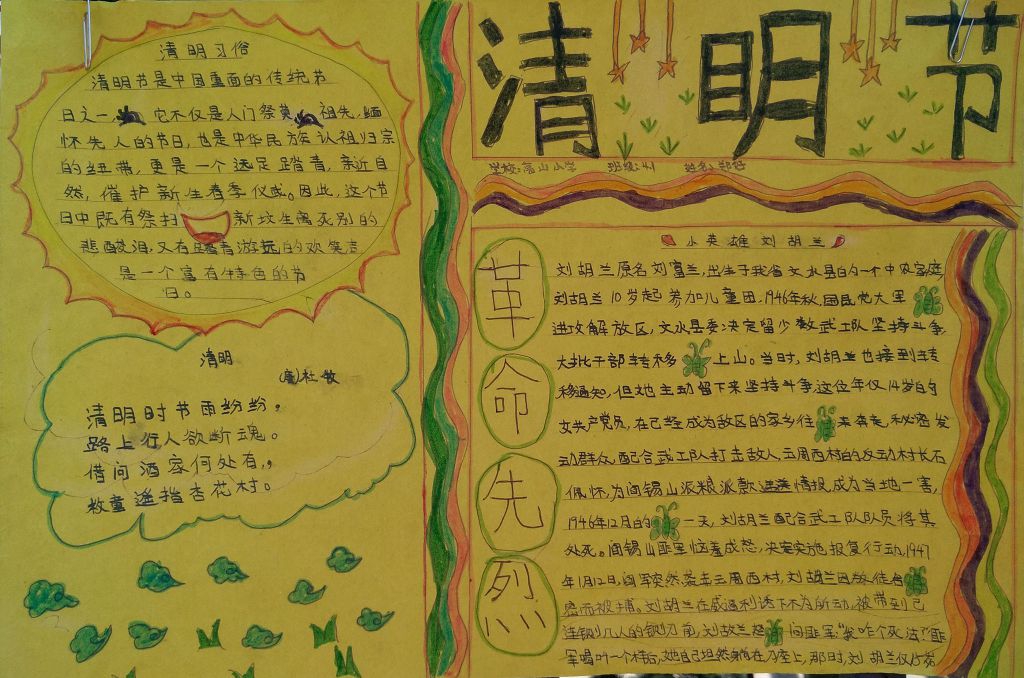 清明节
学校:高山小学 班级:四1 姓名:
清明习俗
清明节是中国重面的传统节
日之一, 它不仅是人门祭奠 祖先,缅
怀先人的节日,也是中华民族认祖归宗
的纽带,更是一个远足踏青,亲近自
然,催护新生春季仪式。因此,这个节
日中既有祭扫 新坟生离死别的
悲酸泪,又有踏青游玩的欢笑声
是一个富有特色的节
日。
清明
(唐)杜牧
清明时节雨纷纷,
路上行人欲断魂。
借问酒家何处有,
牧童遥指杏花村。
革命先烈
小英雄刘胡兰
刘胡兰原名刘富兰,出生于我省文水县的一个中农家庭
刘胡兰10岁起参加儿童团,1946年秋,国民党大军
进攻解放区,文水县委决定留少数武工队坚持斗争,
大批干部转移 上山。当时,刘胡兰也接到转
移通知,但她主动留下来坚持斗争,这位年仅14岁的
女共产党员,在已经成为敌区的家乡往 来奔走,秘密发
动群众,配合武工队打击敌人,云周西村的反动村长石
佩怀,为阎锡山派粮派款 情报,成为当地一害,
1946年12月的 一天,刘胡兰配合武工队队员将其
处死。阎锡山匪军恼羞成怒,决定实施报复行动,1947
年1月12日,阎军突然袭击云周西村,刘胡兰因叛徒告
密而被捕。刘胡兰在威逼利诱下不为所动,被带到已
连铡几人的铡刀前,刘胡兰怒 问匪军“我咋个死法?”匪
军喝叫一个样后,她自己坦然躺在刀座上,那时,刘胡兰仅15岁